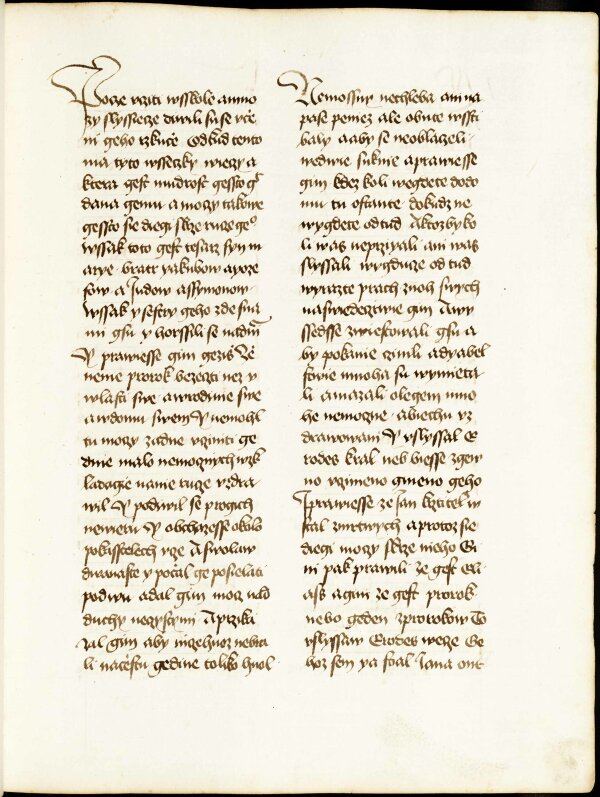 Pocze vcziti wsskole amno
zy slyssiecze diwili su se vcze
ni geho rzkucze Odkud tento
ma tyto wsseczky wieczy a
ktera gest mudrost gessto gt
dana gemu a moczy takowe
gessto sie diegi skrze rucze geo
wssak toto gest tesarz syn m
arye bratr yakubow ayoze
fow a Judow assymonow
wssak y sestry geho zde sna
mi gsu y horssili se
Y prawiesse gim gezis Ze
nenie prorok bezecti nez w
wlasti swe awrodinie swe
awdomu swem Y nemohl
tu moczy zadne vcziniti ge
dine malo nemocznych wzk
ladagie nanie rucze vzdra
wil Y podiwil se progich
newieru Y obchazesse okolo
vcze Aswolaw
dwanaste y poczal ge posielati
podwu adal gim mocz nad
duchy neczystymi Aprzika
zal gim aby niczehuoz nebra
li nacestu gedine toliko huol
Nemossny nechleba ani na
pase peniez ale obute wssti
baly aaby se neoblaczeli
wedwie suknie aprawiesse
gim kdez koli wegdete dodo
mu tu ostante dokudz ne
wygdete odtud Aktozbyko
li was neprzyyali ani was
slyssali wygduce odtud
wyrazte prach znoh swych
naswiedeczstwie gim Awy
ssedsse zwiestowali gsu a
by pokanie czinili adyabel
stwie mnoha su wymieta
li amazali olegem mno
he nemoczne abiechu vz
drawowani Y vslyssal E
rodes kral neb biesse zgew
no vczineno gmeno geho
Iprawiesse ze Jan krztitel w
stal zmrtwych aprotoz sie
diegi moczy skrze nieho Gi
ni pak prawili ze gest Eli
ass agini ze gest prorok
nebo geden zprorokow To
vslyssaw Erodes wece Ge
hoz sem ya stial Jana ont